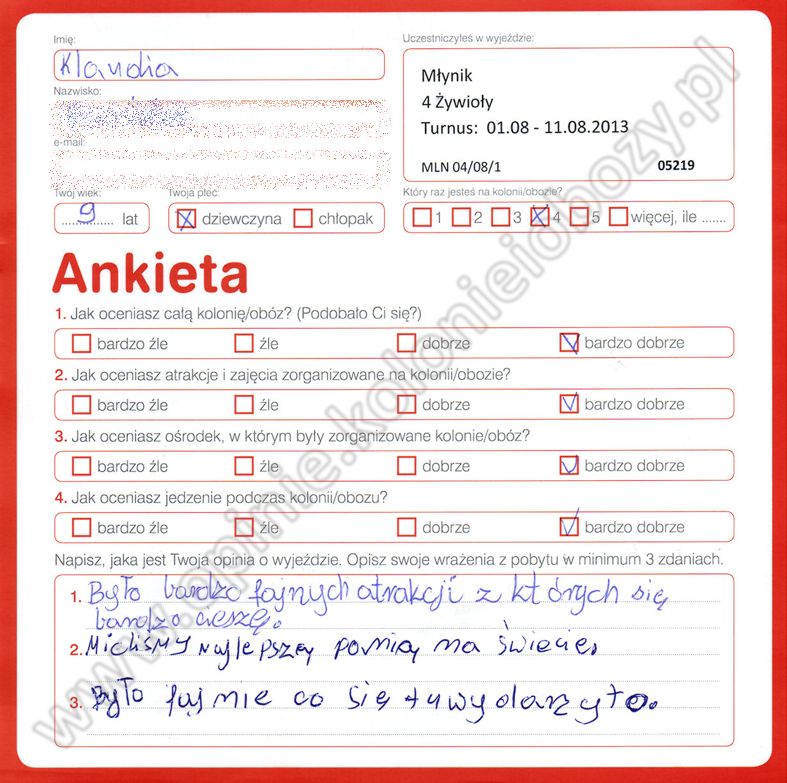 Imię:
Uczestniczyłeś w wyjeździe:
Klaudia
Młynik
4 Żywioły
Turnus: 01.08 - 11.08.2013
MLN 04/08/1 05219
Nazwisko:
e-mail:
Twój wiek:
Twoja płeć:
Który raz jesteś na kolonii/obozie?
9 lat
dziewczyna chłopak
1 2 3 4 5 więcej, ile .......
Ankieta
1. Jak oceniasz całą kolonię/obóz? (Podobało Ci się?)
bardzo źle źle dobrze bardzo dobrze
2. Jak oceniasz atrakcje i zajęcia zorganizowane na kolonii/obozie?
bardzo źle źle dobrze bardzo dobrze
3. Jak oceniasz ośrodek, w którym były zorganizowane kolonie/obóz?
bardzo źle źle dobrze bardzo dobrze
4. Jak oceniasz jedzenie podczas kolonii/obozu?
bardzo źle źle dobrze bardzo dobrze
Napisz, jaka jest Twoja opinia o wyjeździe. Opisz swoje wrażenia z pobytu w minimum 3 zdaniach.
1. Było bardzo fajnych atrakcji z których się
bardzo cieszę.
2. Mieliśmy najlepszą panią na świecie.
3. Było fajnie co się tu wydarzyło.
www.opinie.kolonieiobozy.pl